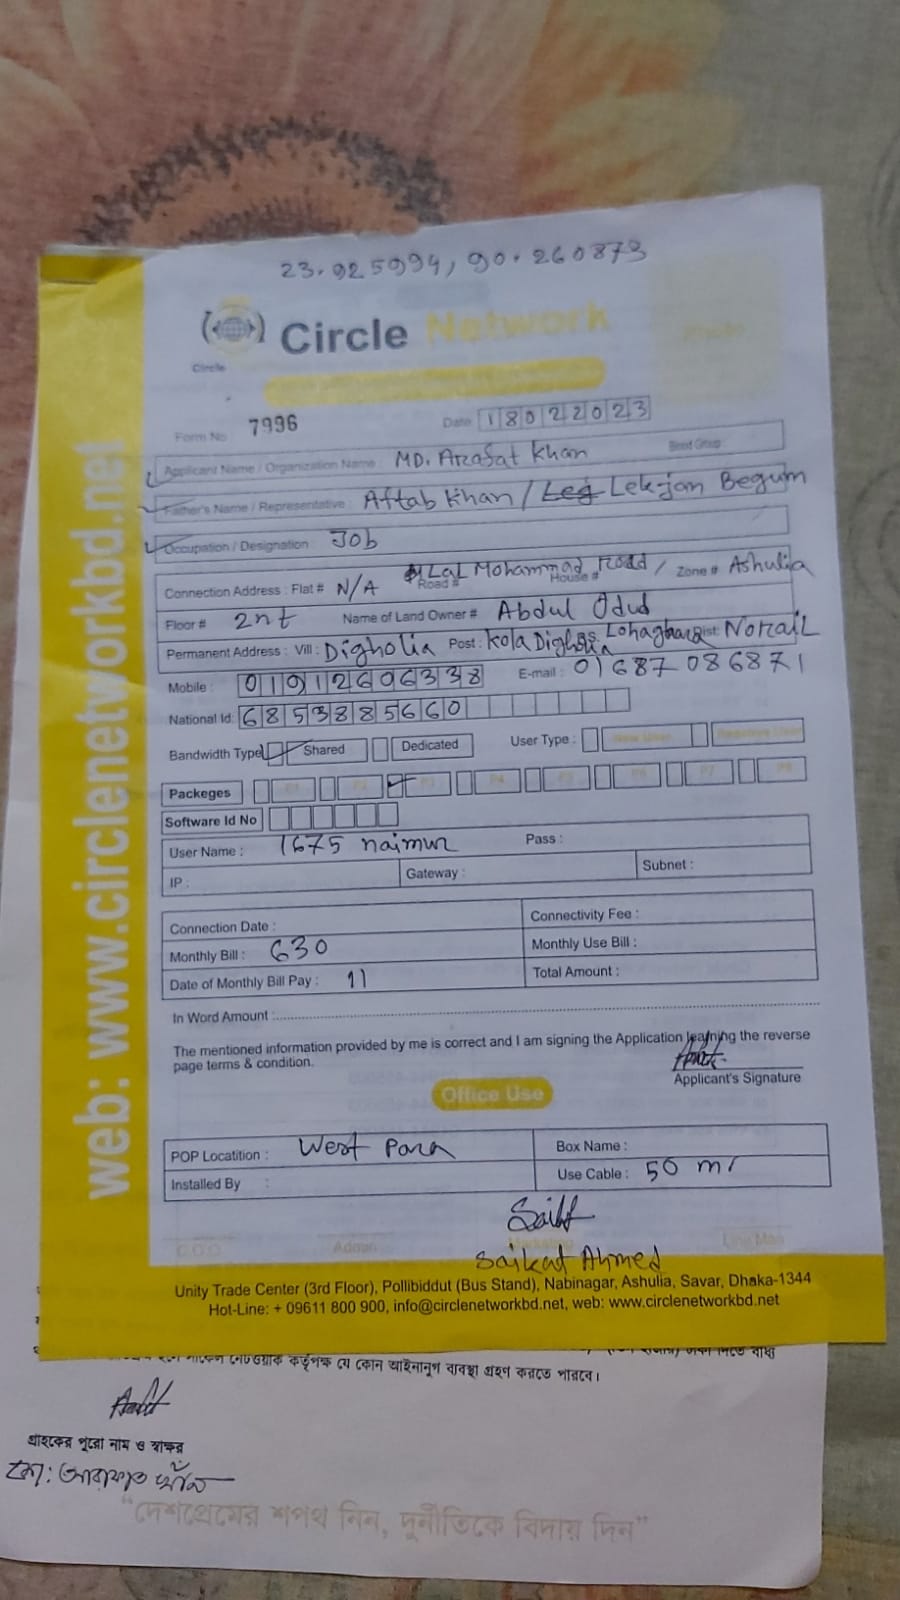 23.925994, 90.260873
Circle Network
Circle
Form No 7996 Date 18022023
Applicant Name / Organization Name : MD. Arafat Khan Blood Group
Father's Name / Representative : Aftab Khan / Lekjan Begum
Occupation / Designation Job
Connection Address : Flat # N/A Road # Lal Mohammad Road / House # Zone # Ashulia
Floor # 2nt Name of Land Owner # Abdul Odud
Permanent Address : Vill : Digholia Post : Kola Digholia Lohagbara Dist: Norail
Mobile : 01912606338 E-mail : 01687086871
National Id: 6853885660
Bandwidth Type Shared Dedicated User Type : New User
Packeges P1 P2 P3 P4 P5 P6 P7 P8
Software Id No
User Name : 1675 naimur Pass :
IP : Gateway : Subnet :
Connection Date : Connectivity Fee :
Monthly Bill : 630 Monthly Use Bill :
Date of Monthly Bill Pay : 11 Total Amount :
In Word Amount :
The mentioned information provided by me is correct and I am signing the Application learning the reverse
page terms & condition.
Applicant's Signature
Office Use
POP Locatition : West Para Box Name :
Installed By : Use Cable : 50 mr
C.O.O Admin Marketing Line Man
Saikat Ahmed
Unity Trade Center (3rd Floor), Pollibiddut (Bus Stand), Nabinagar, Ashulia, Savar, Dhaka-1344
Hot-Line: + 09611 800 900, info@circlenetworkbd.net, web: www.circlenetworkbd.net
web: www.circlenetworkbd.net
কর্তৃপক্ষ যে কোন আইনানুগ ব্যবস্থা গ্রহণ করতে পারবে।
গ্রাহকের পুরো নাম ও স্বাক্ষর
মো: আরাফাত খাঁন
"দেশপ্রেমের শপথ নিন, দুর্নীতিকে বিদায় দিন"